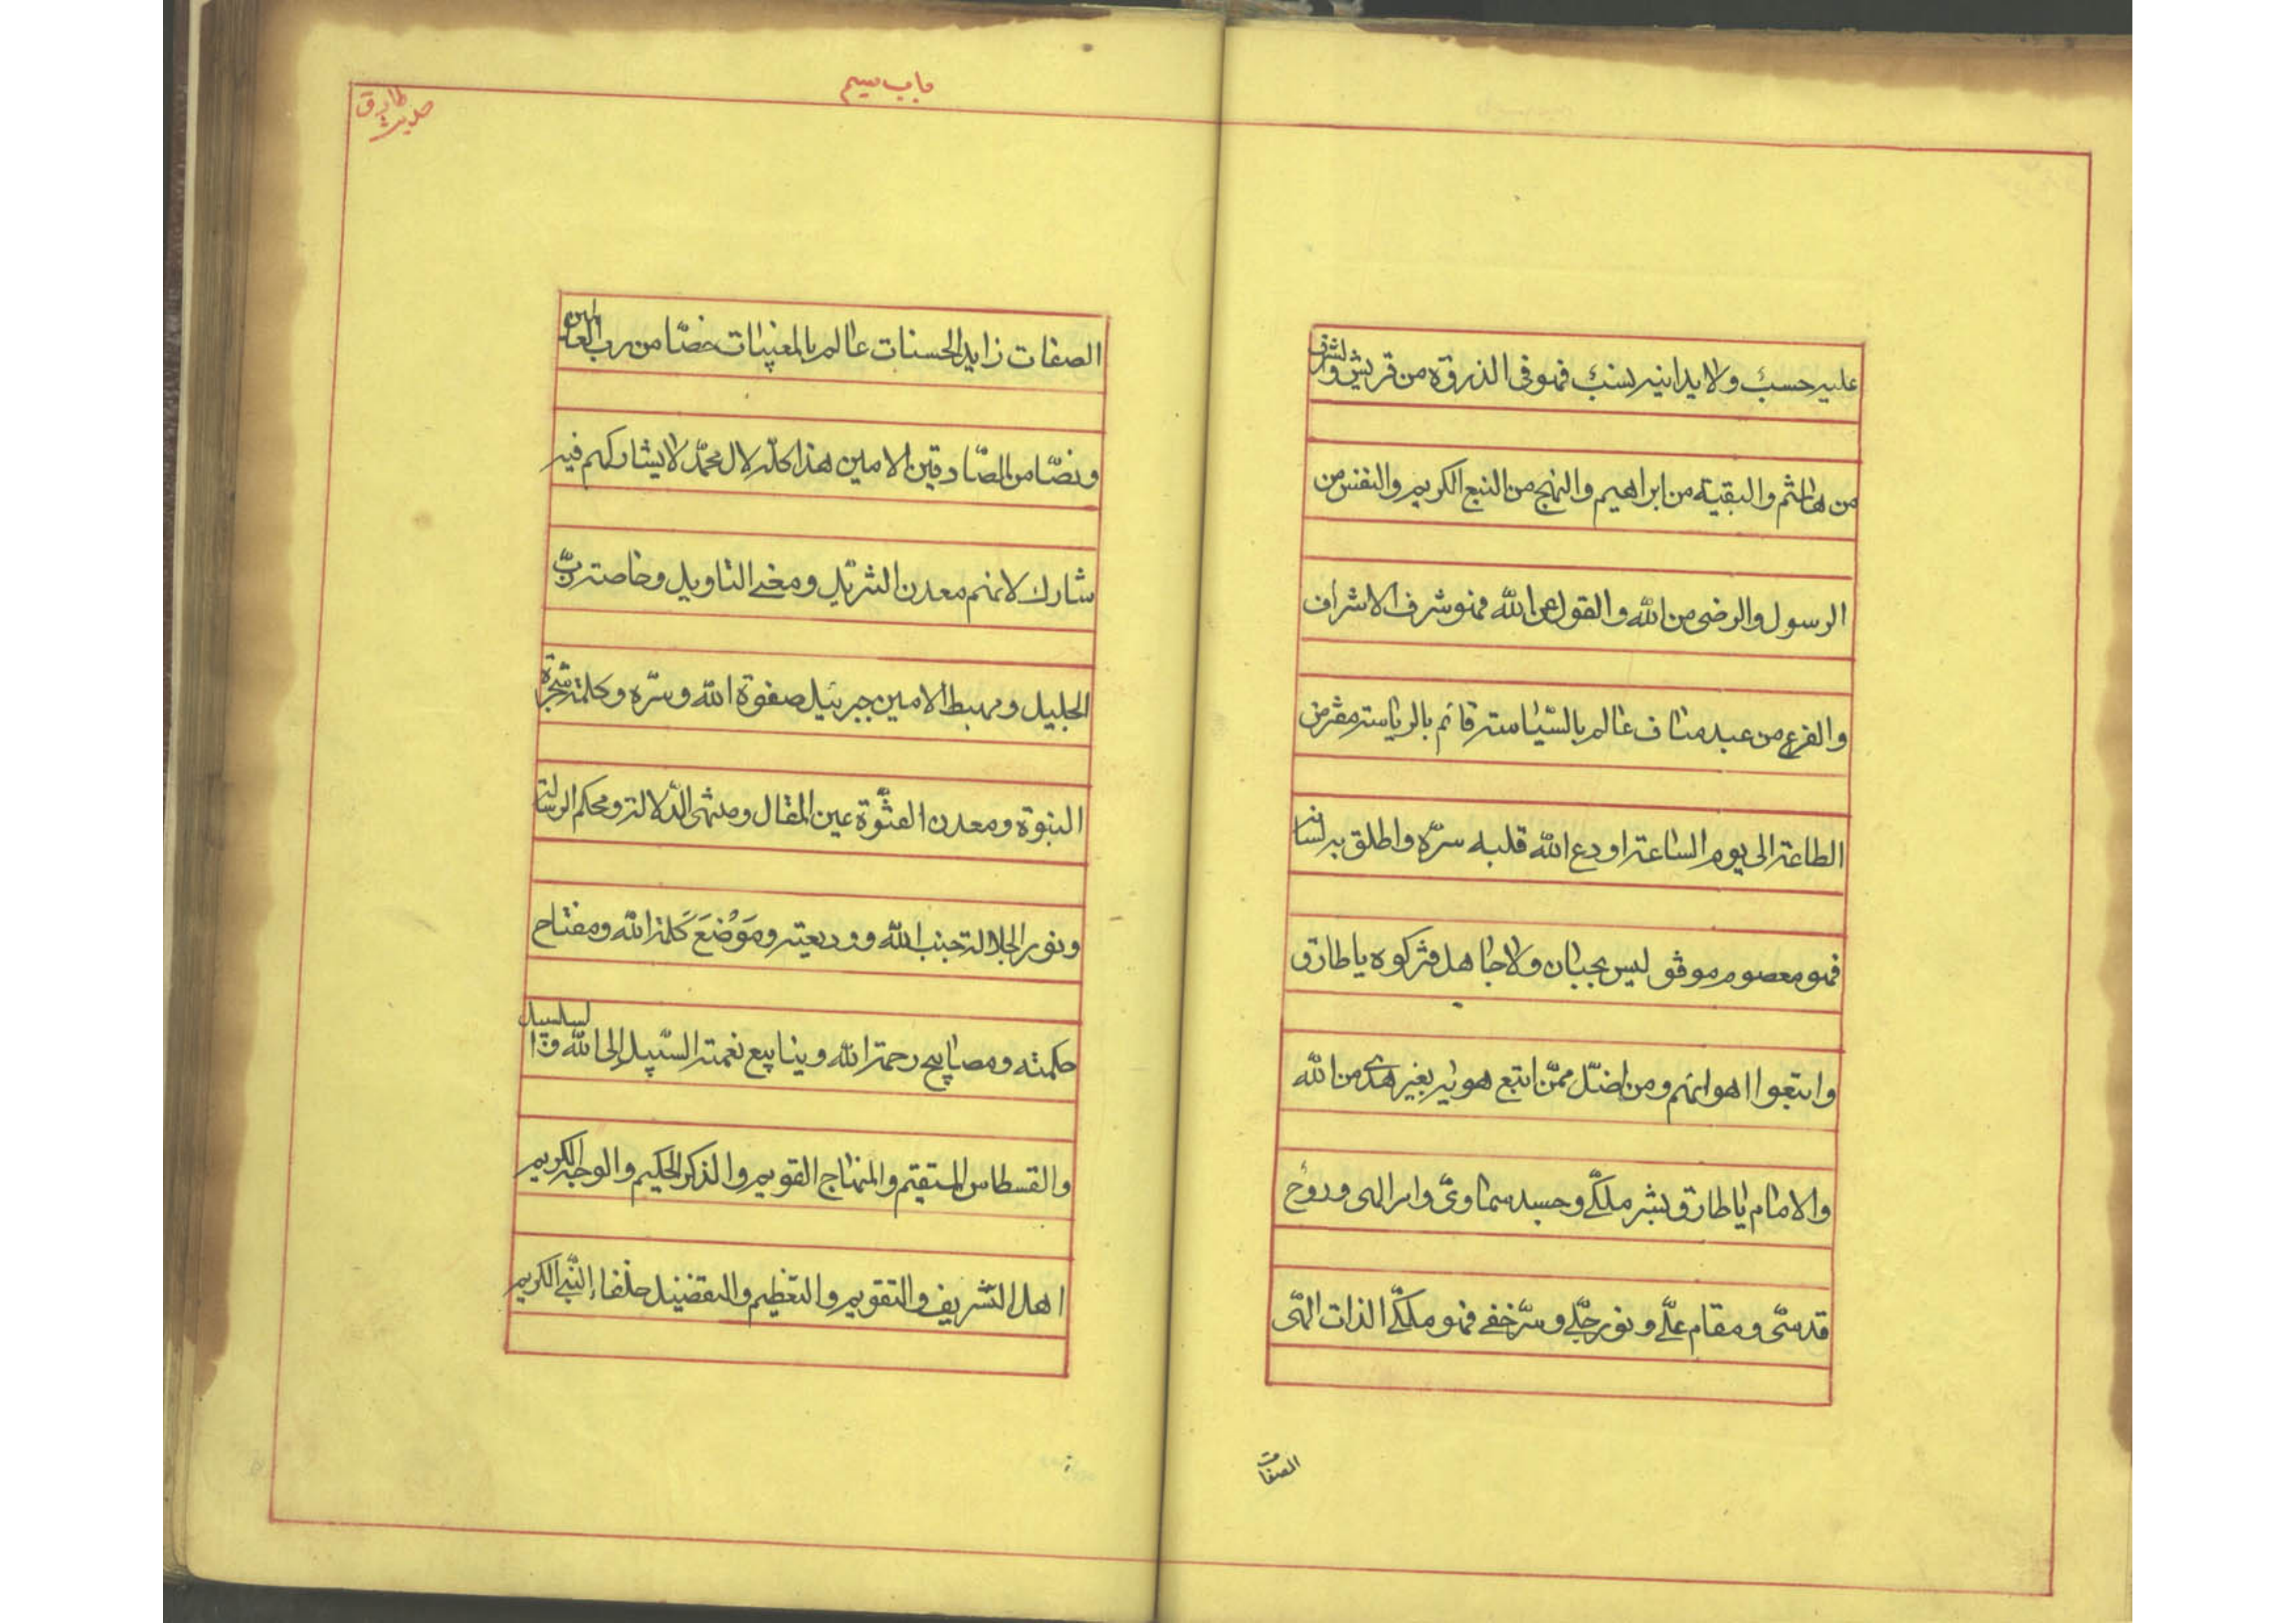 عليه حسب ولا يدانيه نسب فهو فى الذروة من قريش والشرف
من هاشم والبقية من ابراهيم والنهج من النبع الكريم والنفس من
الرسول والرضى من الله والقول عن الله فهو شرف الاشراف
والفرع من عبد مناف عالم بالسّياسة قائم بالرياسة مفترض
الطاعة الى يوم الساعة اودع الله قلبه سرّه واطلق به لسانه
فهو معصوم موفق ليس بجبان ولا جاهل فتركوه يا طارق
واتبعوا اهوائهم ومن اضلّ ممّن اتبع هويه بغير هدى من الله
والامام يا طارق بشر ملكىّ وجسد سماوىّ وامر الهى وروح
قدسىّ ومقام علىّ ونور جلىّ وسرّ خفى فهو ملكىّ الذات الهىّ
الصفات
باب سيم
حديث طارق
الصفات زايد الحسنات عالم بالمغيبات خصّا من رب العالمين
ونصّا من الصّادقين الامين هذا كله لال محمّد لا يشاركهم فيه
شارك لانهم معدن التنزيل ومعنى التاويل وخاصة ربّ
الجليل ومهبط الامين جبرئيل صفوة الله وسرّه وكلمته شجرة
النبوة ومعدن الفتوّة عين المقال ومنتهى الدّلالة ومحكم الرسالة
ونور الجلالة جنب الله ووديعته ومَوْضَعَ كَلمة الله ومفتاح
حكمته ومصابيح رحمة الله وينابيع نعمته السّبيل إلى الله والسلسبيل
والقسطاس المستقيم والمنهاج القويم والذكر الحكيم والوجه الكريم
اهل التشريف والتقويم والتعظيم والتفضيل خلفاء النّبى الكريم